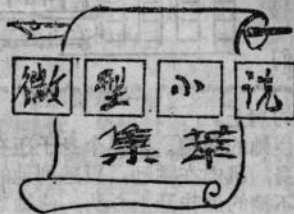 微型小说
集萃